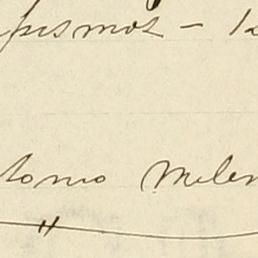 pismos - 12
tonio Melen
"